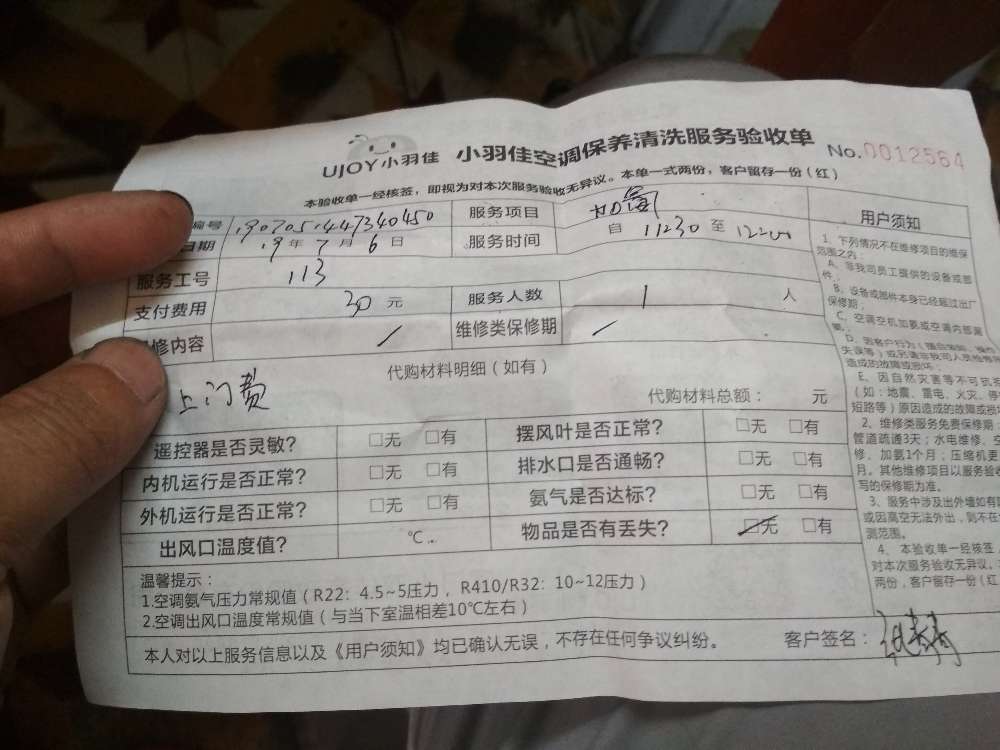 UJOY小羽佳 小羽佳空调保养清洗服务验收单 No.0012564
本验收单一经核签，即视为对本次服务验收无异议。本单一式两份，客户留存一份（红）
编号 190705.447340450 服务项目
日期 19年7月6日 服务时间 自 11:30 至 12:00
服务工号 113
支付费用 30 元 服务人数 1 人
修内容 / 维修类保修期 /
代购材料明细（如有）
上门费
代购材料总额： 元
遥控器是否灵敏? □无 □有 摆风叶是否正常? □无 □有
内机运行是否正常? □无 □有 排水口是否通畅? □无 □有
外机运行是否正常? □无 □有 氨气是否达标? □无 □有
出风口温度值? ℃ 物品是否有丢失? □无 □有
温馨提示：
1.空调氨气压力常规值（R22：4.5~5压力，R410/R32：10~12压力）
2.空调出风口温度常规值（与当下室温相差10℃左右）
本人对以上服务信息以及《用户须知》均已确认无误，不存在任何争议纠纷。 客户签名：
用户须知
1、下列情况不在维修项目的维保
范围之内：
A、非我司员工提供的设备或部
件；
B、设备或部件本身已经超过出厂
保修期；
C、空调空机加氨或空调内部漏
失误等）或另请非我司人员检修
造成的故障或损坏；
E、因自然灾害等不可抗
（如：地震、雷电、火灾、停
短路等）原因造成的故障或损
2、维修类服务免费保修期：
管道疏通3天；水电维修、空
修、加氨1个月；压缩机更
月。其他维修项目以服务验
写的保修期为准。
3、服务中涉及出外墙如有
或因高空无法外出，则不在
测范围。
4、本验收单一经核签，
对本次服务验收无异议。
两份，客户留存一份（红